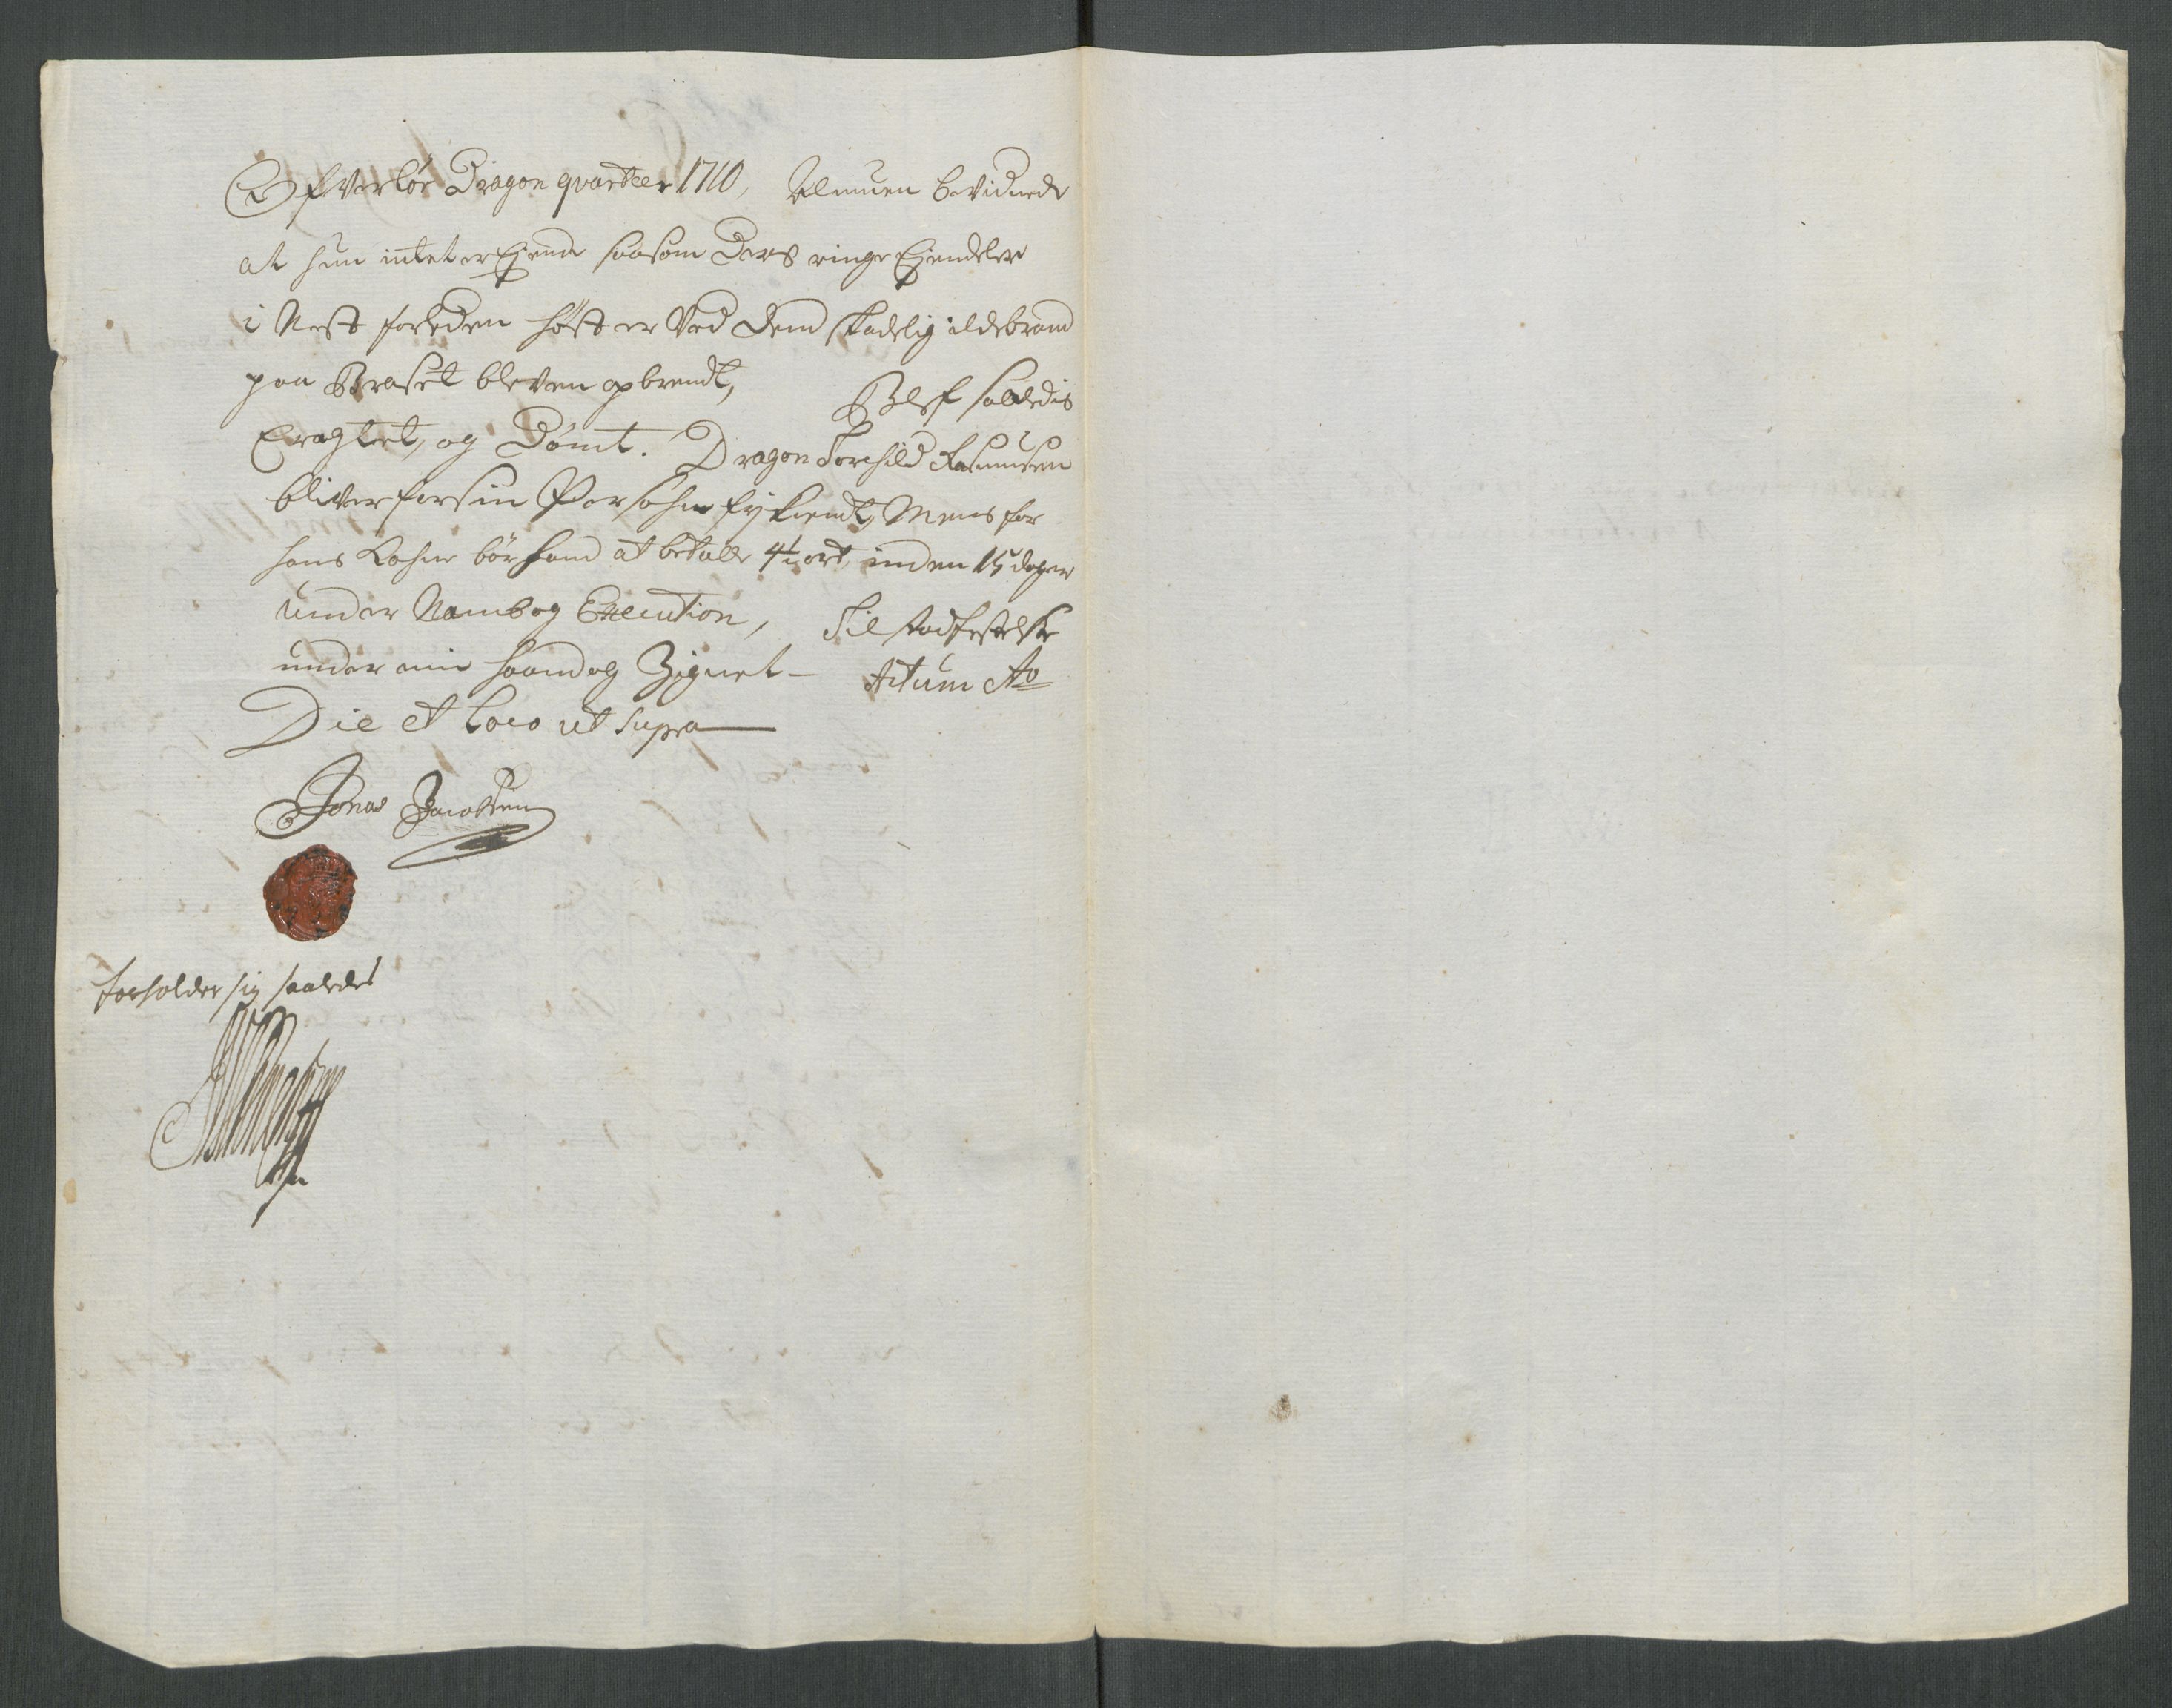 Ofverlöe Dragon qvarteer 1710, Almuen bevidnede
at hun intet er Ejende saasom Ders ringe Ejendeler
i Nest forleden höst er Ved dend skadelig ildebrand
paa Braset bleven opbrendt, Blef saaledis
Eragtet, og Dömt. Dragon Torchild Rasmusen
bliver for sin Persohn frj kiendt, Mens for
hans Kohne bör hand at betalle 4½ ort inden 15 dager
under Namb og Execution, Til stadfestelse
under min haand og Zignet - Actum Ao
Die et loco ut supra
Jonas Jacobsen
forholder sig saaledes